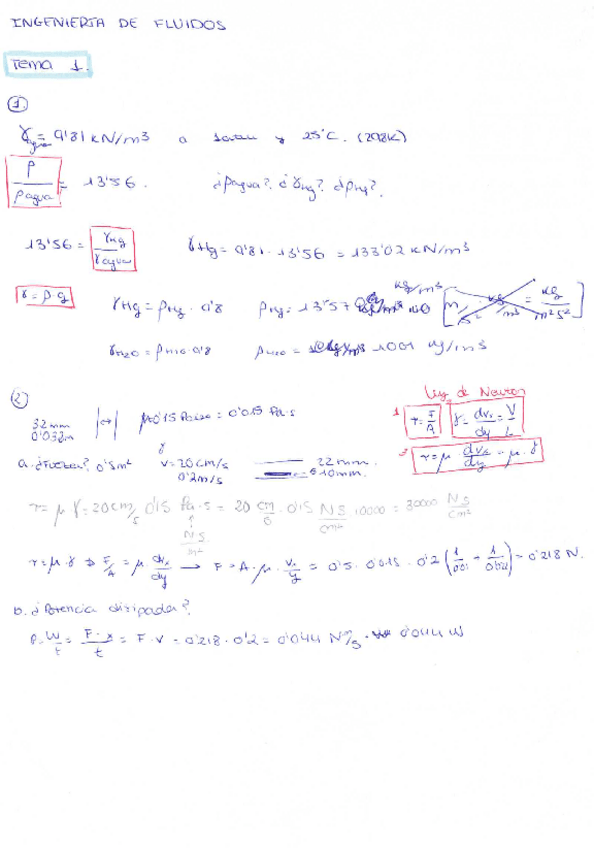 INGENIERIA DE FLUIDOS
Tema 1.
1.
γagua = 9'81 kN/m3 a 1 atm y 25°C. (298K)
ρ/ρagua = 13'56. ¿ρagua?. ¿γHg? ¿ρHg?.
13'56 = γHg/γagua γHg = 9'81 · 13'56 = 133'02 kN/m3
γ = ρ·g γHg = ρHg · 9'8 ρHg = 13'57 kg/m3
γH2O = ρH2O · 9'8 ρH2O = 1001 kg/m3
2 Ley de Newton
32mm 0'032m μ=0'15 Poise = 0'015 Pa·s 1 τ = F/A γ = dvx/dy = V/L
a. ¿Fuerza? 0'5m² v = 20 cm/s 0'2 m/s 22mm. 10mm. 2 τ = μ · dvx/dy = μ · γ
τ = μ γ = 20 cm/s 0'15 Pa·s = 20 cm/s · 0'15 NS/cm² 10000 = 30000 NS/cm²
NS/m²
τ = μ·γ ⇒ F/A = μ · dvx/dy → F = A · μ · vx/y = 0'5 · 0'015 · 0'2 (1/0'01 + 1/0'022) = 0'218 N.
b. ¿Potencia disipada?
P = W/t = F·x/t = F·v = 0'218 · 0'2 = 0'044 N m/s · 0'044 W